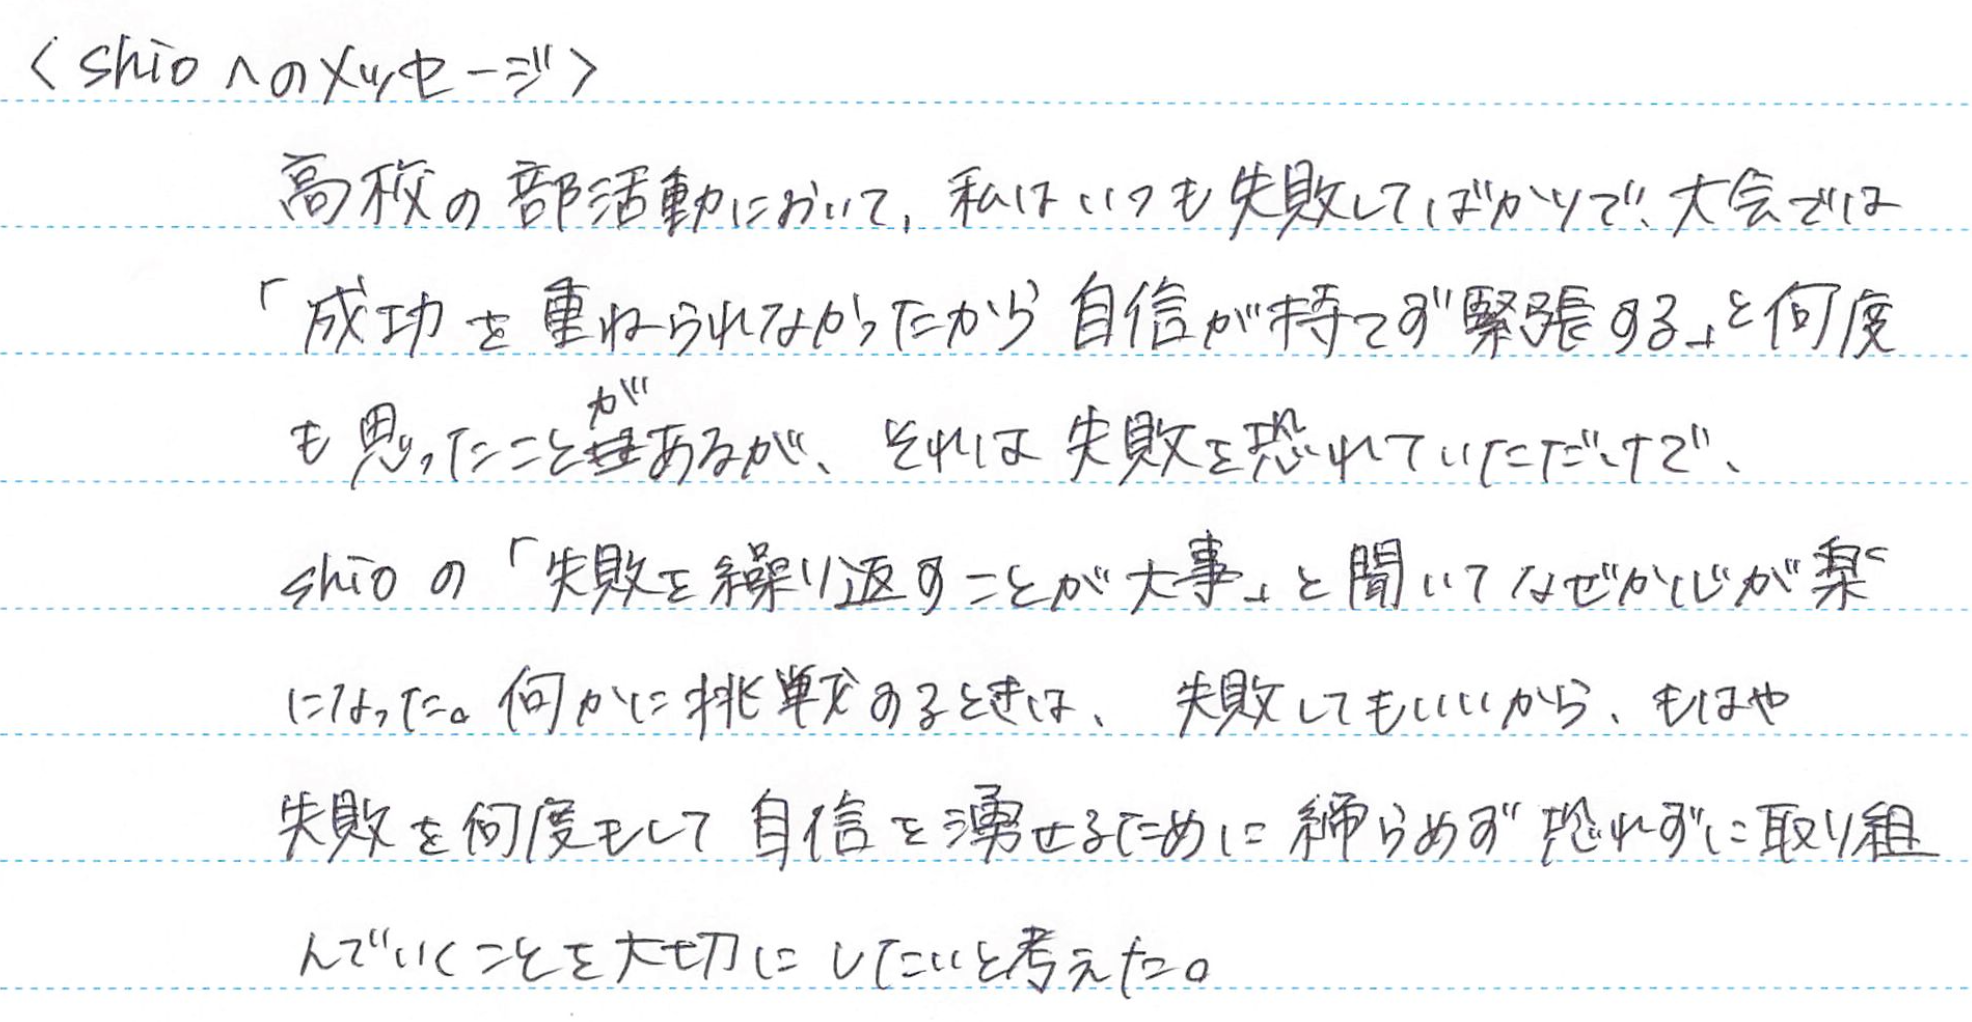 〈shioへのメッセージ〉
高校の部活動において、私はいつも失敗してばかりで、大会では
「成功を重ねられなかったから自信が持てず緊張する」と何度
も思ったことがあるが、それは失敗を恐れていただけで、
shioの「失敗を繰り返すことが大事」と聞いてなぜか心が楽
になった。何かに挑戦するときは、失敗してもいいから、もはや
失敗を何度もして自信を湧せるために締らめず恐れずに取り組
んでいくことを大切にしたいと考えた。